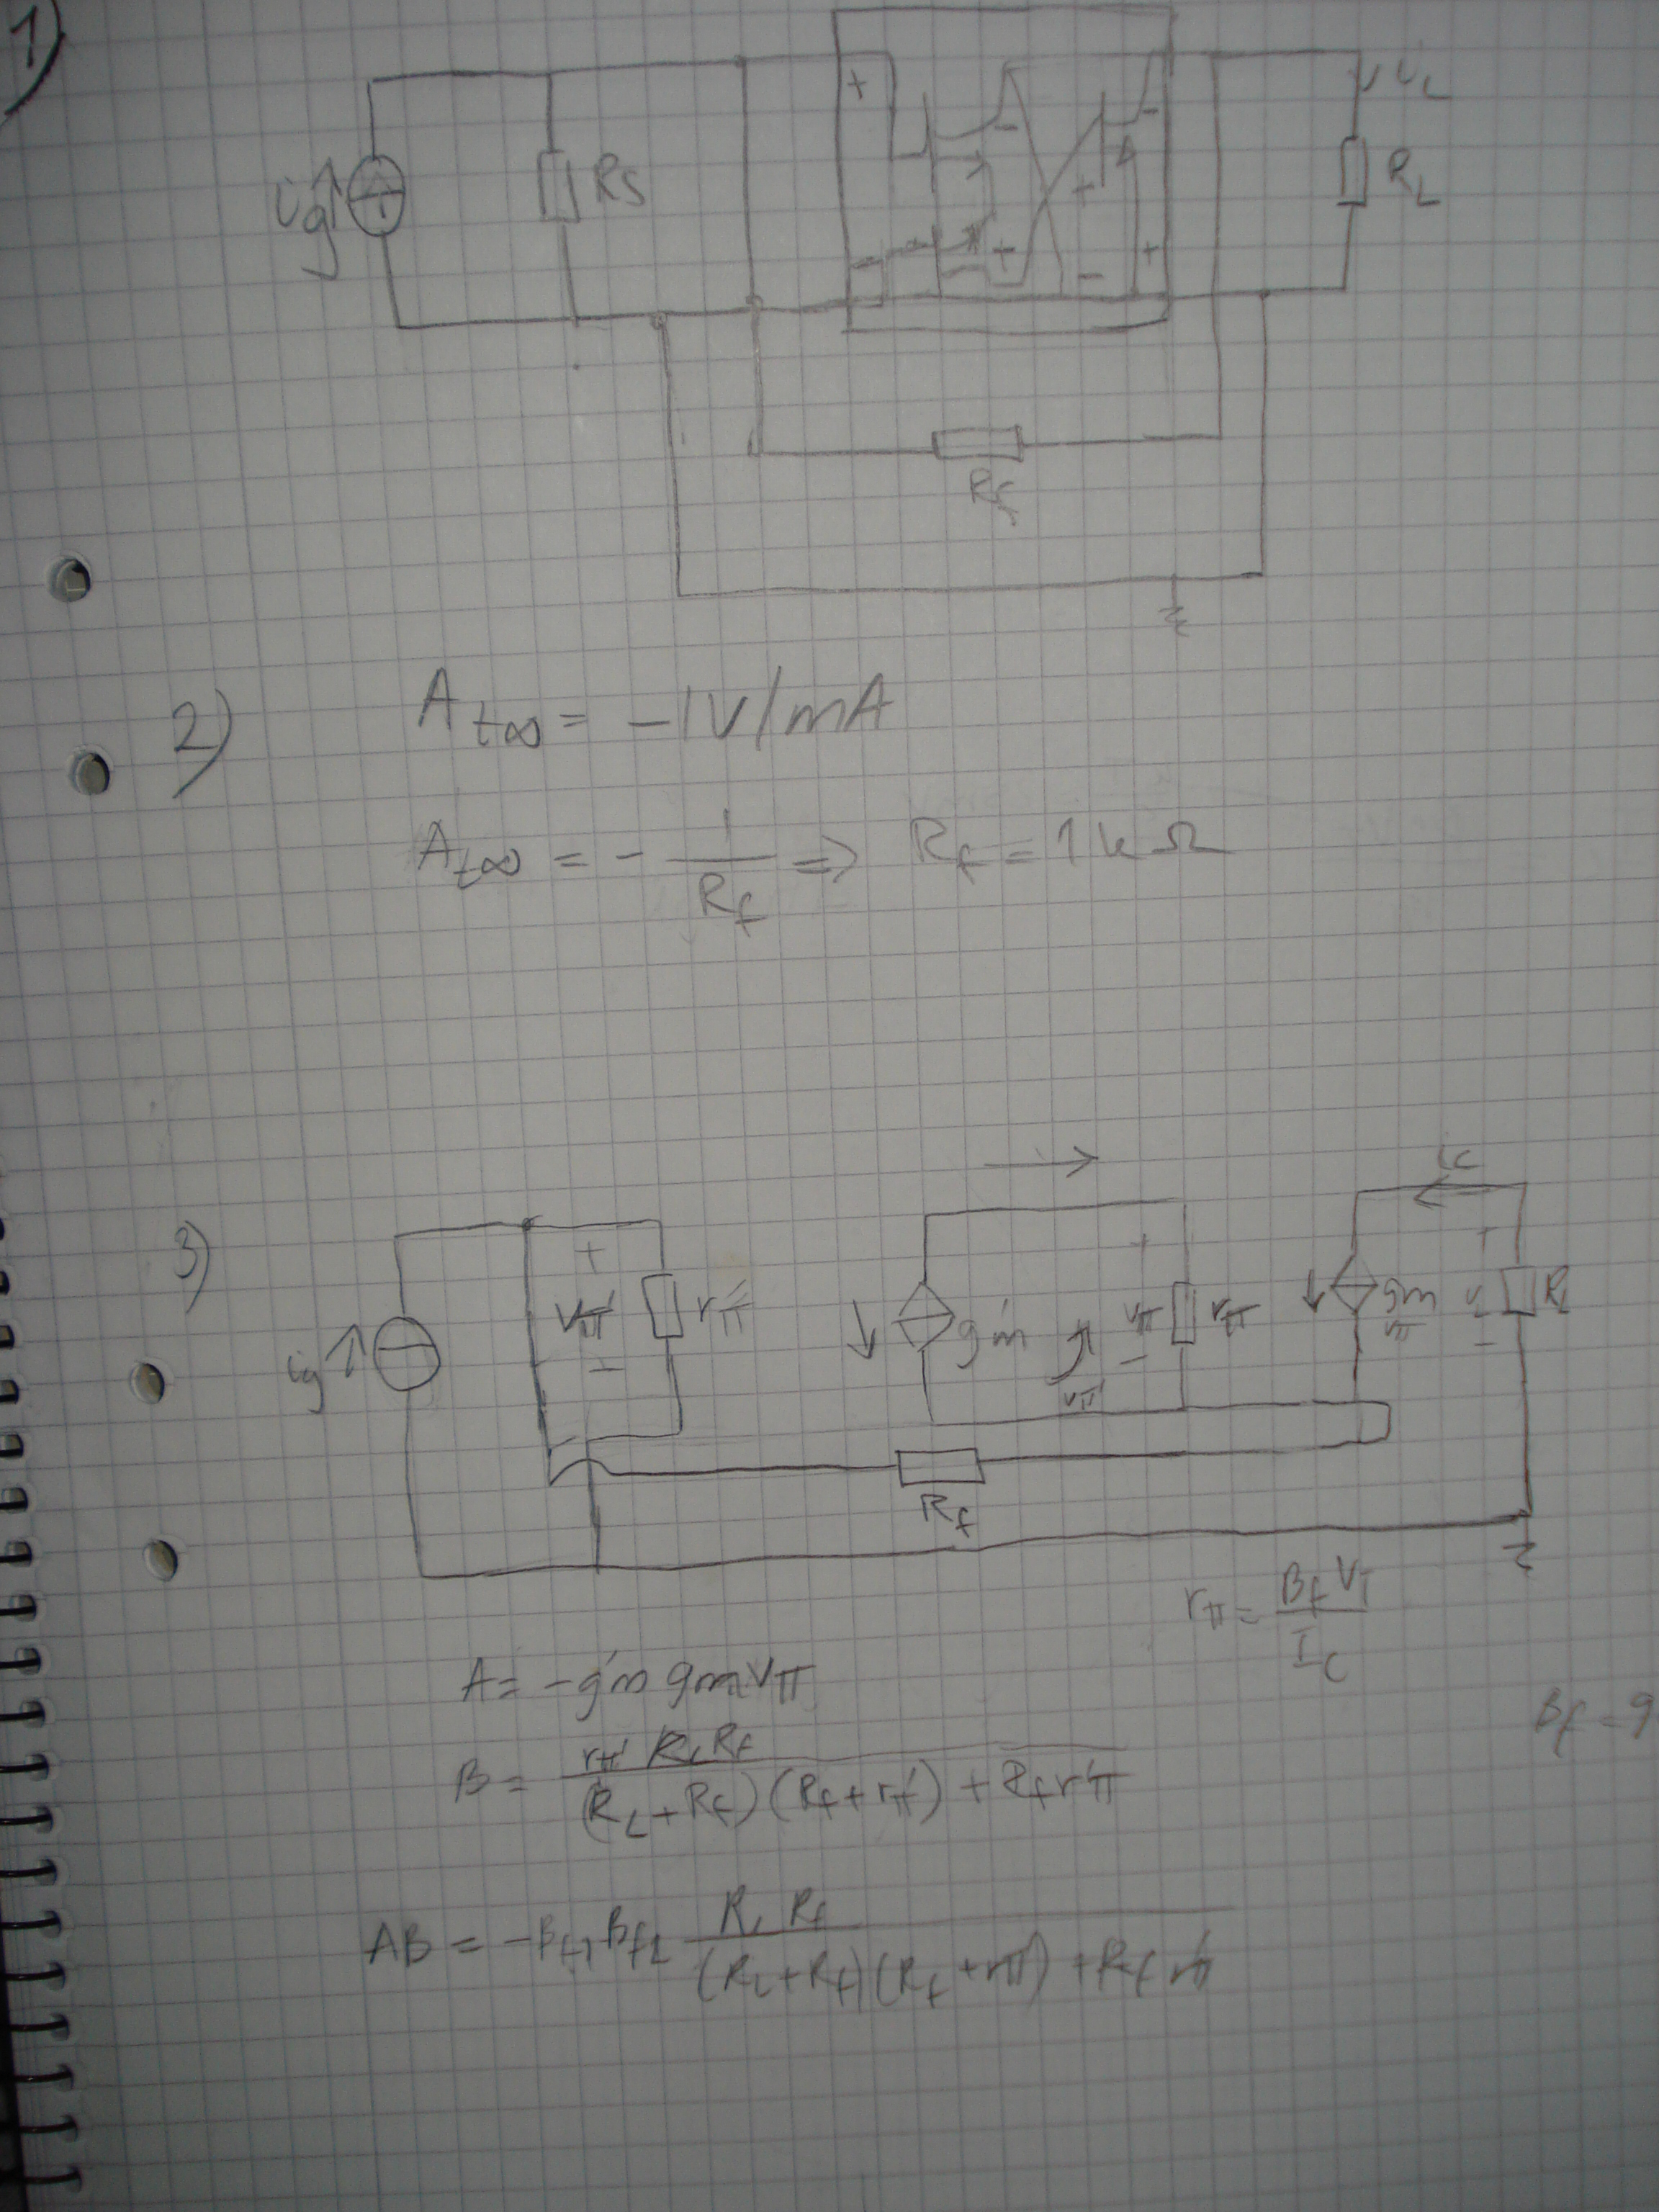 1)
+ - -
ig RS + RL
- + + - +
UL
Rf
2) At∞ = -1V/mA
At∞ = - 1/Rf => Rf = 1kΩ
3)
ic
+ + +
ig vπ' rπ' g'm vπ' vπ rπ gm vπ RL
- - -
Rf
rπ = Bf VT / IC
A = -g'm gm vπ
Bf = 9
B = rπ' RL Rf / (RL + Rf)(Rf + rπ') + Rf rπ'
AB = -Bf1 Bf2 RL Rf / (RL + Rf)(Rf + rπ') + Rf rπ'